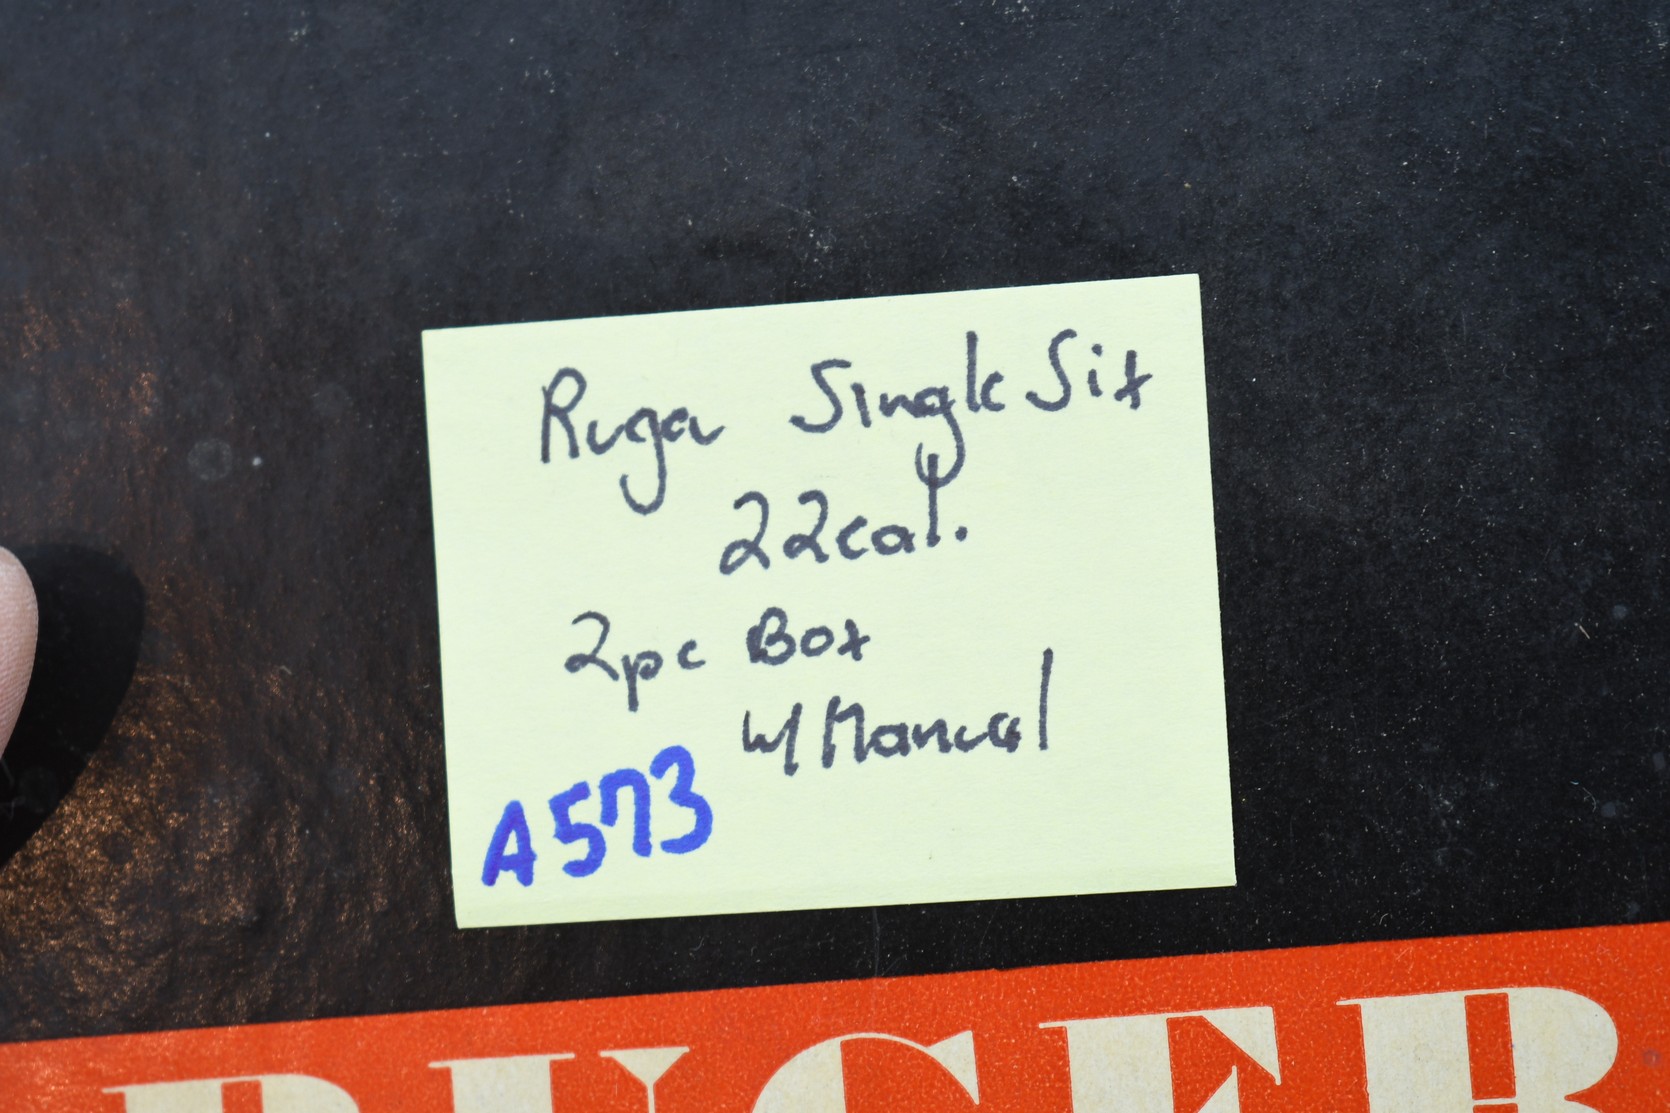 Ruger Single Six
22cal.
2pc Box
w/ Manual
A573
RUGER